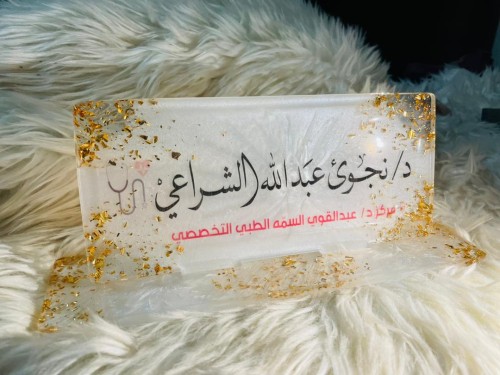 د/ نجوى عبدالله الشراعي
مركز د/ عبدالقوي السمه الطبي التخصصي